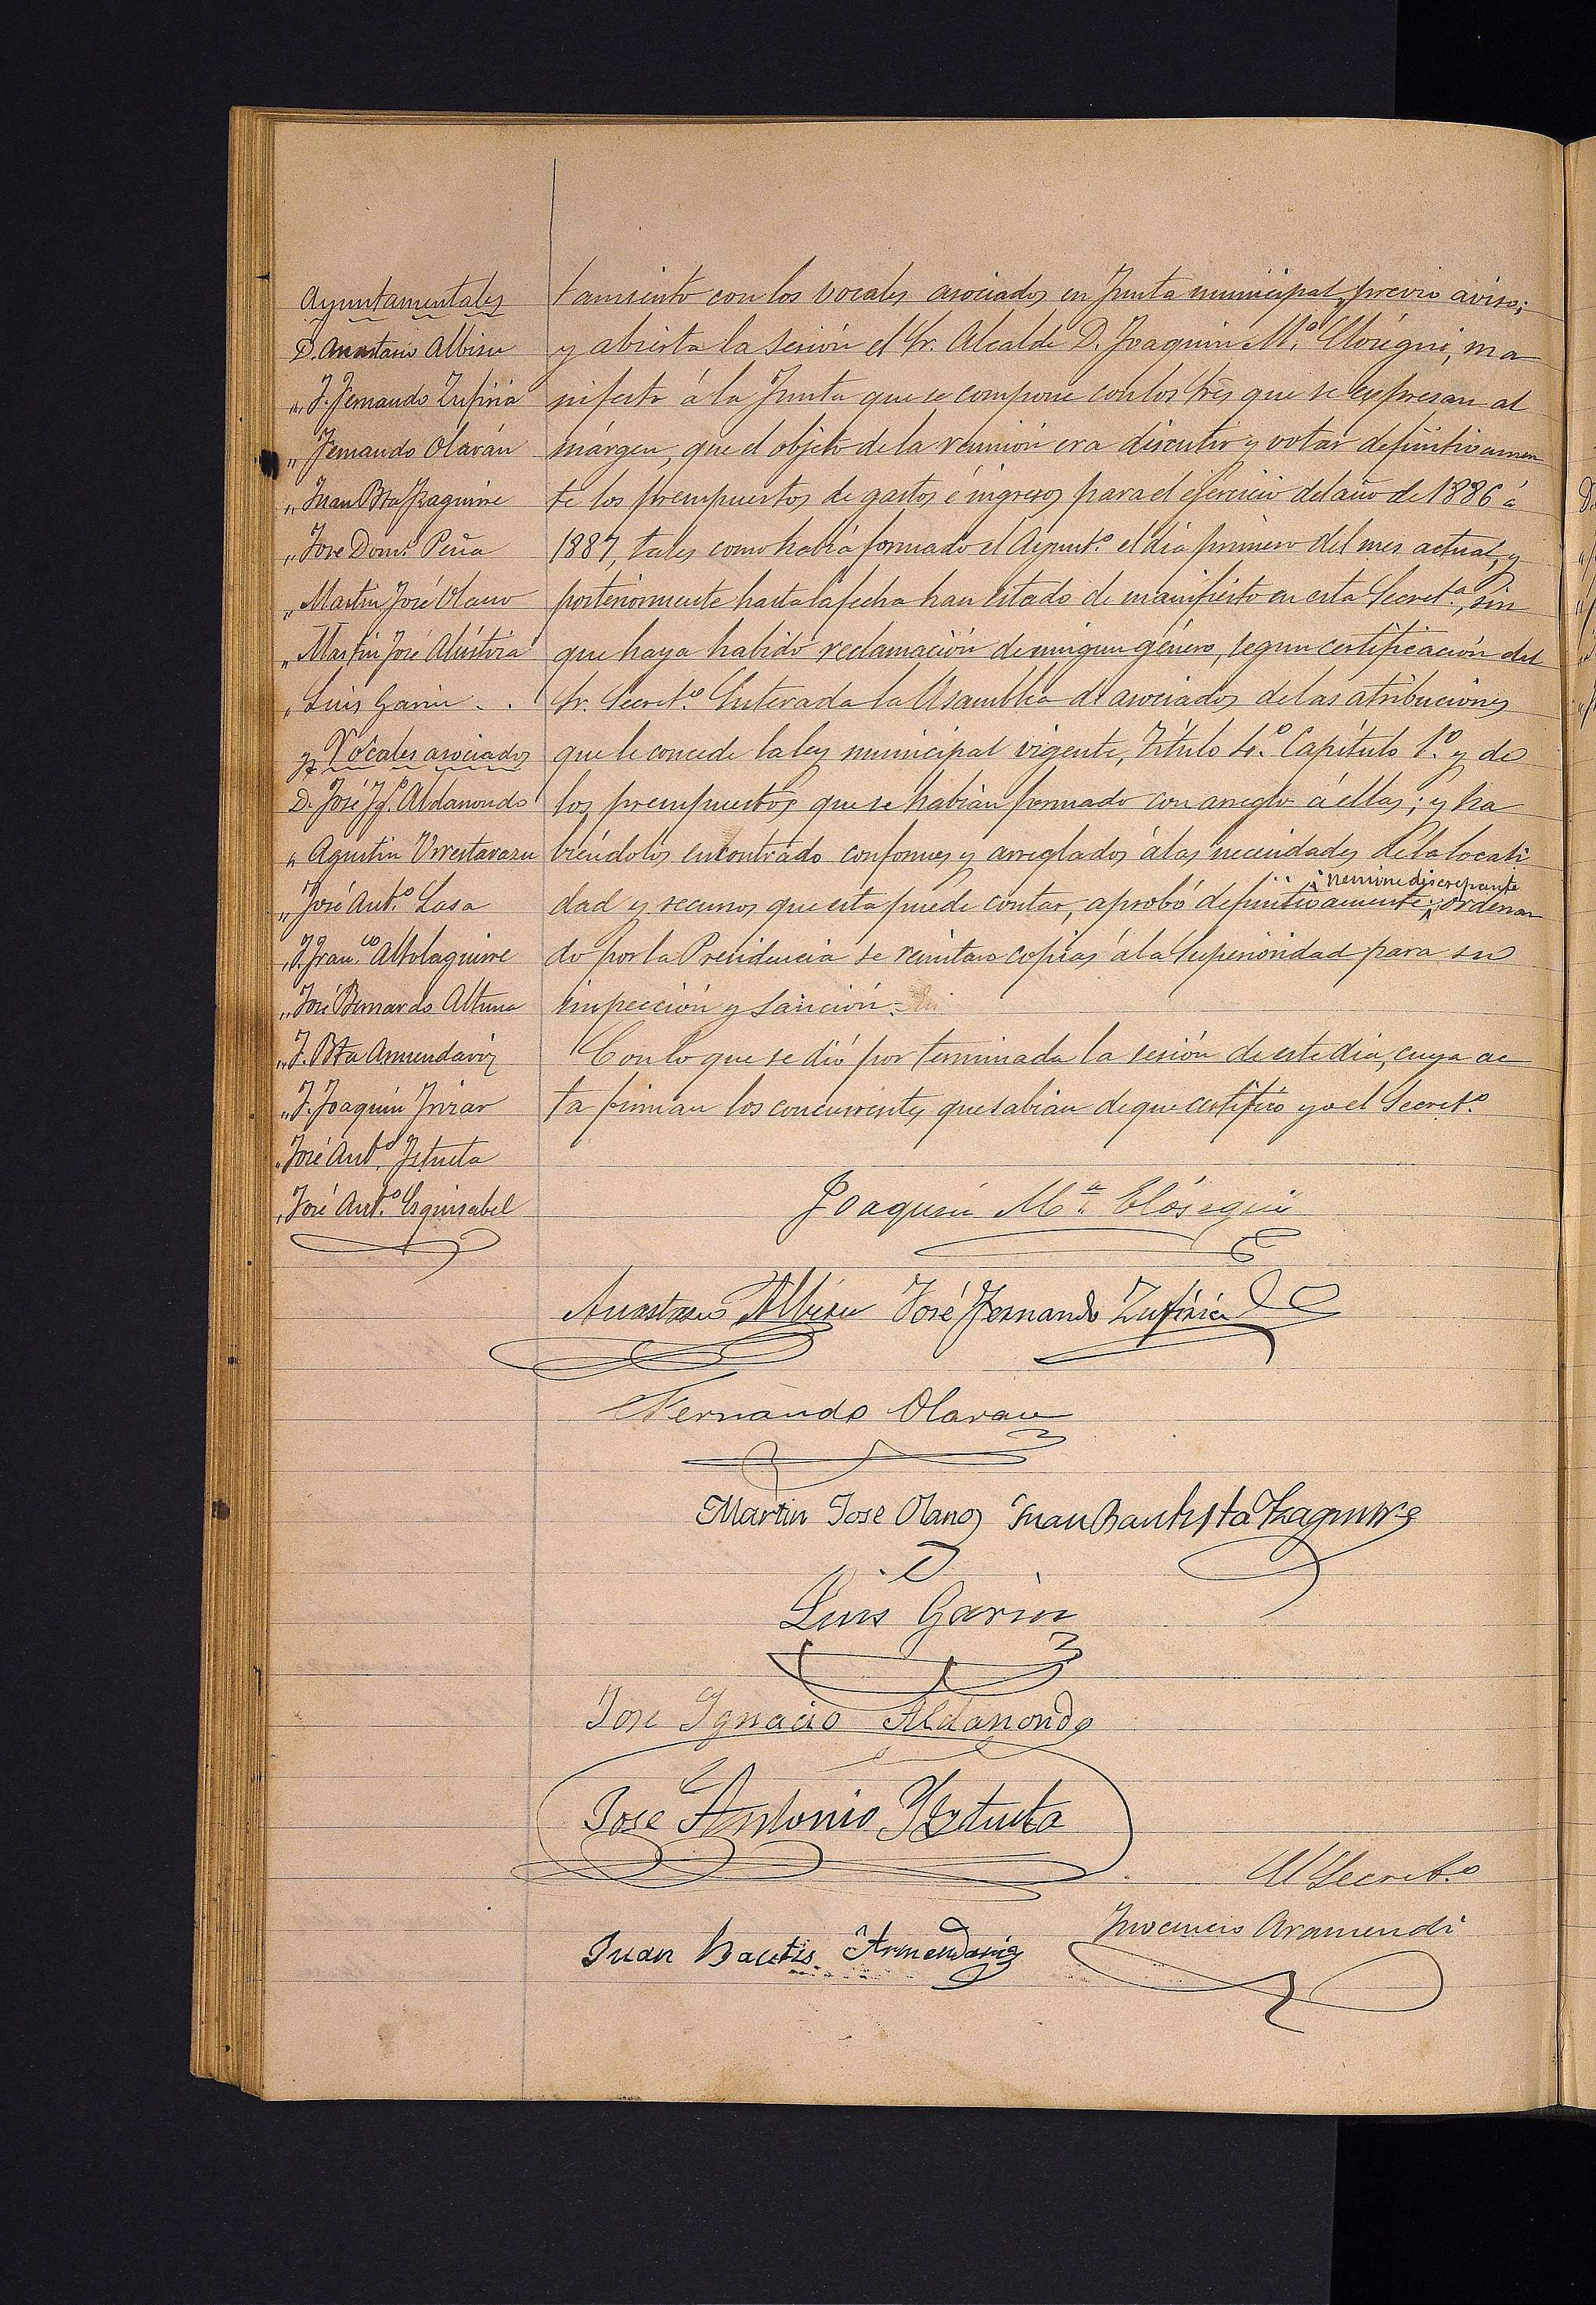 Ayuntamentales
D. Anastasio Albisu
„ J. Fernando Zufiria
„ Fernando Olarán
„ Juan Bta Yzaguirre
„ José Dom.º Peña
„ Martin José Olano
„ Martin José Alústiza
„ Luis Garin . .
y Vocales asociados
D. José Yg.º Aldanondo
„ Agustin Urrestarazu
„ José Ant.º Lasa
„ J. Fran.co Altolaguirre
„ José Bernardo Altuna
„ J. Bta Armendariz
„ J. Joaquin Yrizar
„ José Ant.º Yztueta
„ José Ant.º Esquisabel
tamiento con los vocales asociados en Junta municipal, previo aviso;
y abierta la sesión el Sr. Alcalde D. Joaquin M.ª Elósegui, ma
nifestó á la Junta que se compone con los Sres que se expresan al
márgen, que el objeto de la reunión era discutir y votar definitivamen
te los presupuestos de gastos é ingresos para el ejercicio del año de 1886 á
1887, tales como habia formado el Ayunt.º el dia primero del mes actual, y
posteriormente hasta la fecha han estado de manifiesto en esta Secret.ª, sin
que haya habido reclamación de ningun género, segun certificación del
Sr. Secret.º Enterada la Asamblea de asociados de las atribuciones
que le concede la ley municipal vigente, Título 4.º Capítulo 1.º y de
los presupuestos que se habian formado con arreglo á ellas; y ha
biéndolos encontrado conformes y arreglados á las necesidades de la locali
nemine discrepante
dad y recursos que esta puede contar, aprobó definitivamente; ordenan
do por la Presidencia se remitan copias á la Superioridad para su
inspección y sanción.
Con lo que se dió por terminada la sesión de este dia, cuya ac
ta firman los concurrentes que sabian de que certifico yo el Secret.º
Joaquin M.ª Elósegui
Anastasio Albisu José Fernando Zufiria
Fernando Olaran
Martin Jose Olano Juan Bautista Yzaguirre
Luis Garin
Jose Ygnacio Aldanondo
Jose Antonio Yztueta
El Secret.º
Juan Bautis Armendariz Inocencio Aramendi